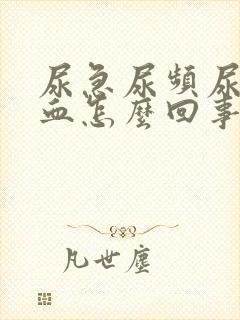 尿急尿頻尿
血怎麼回事
凡世塵